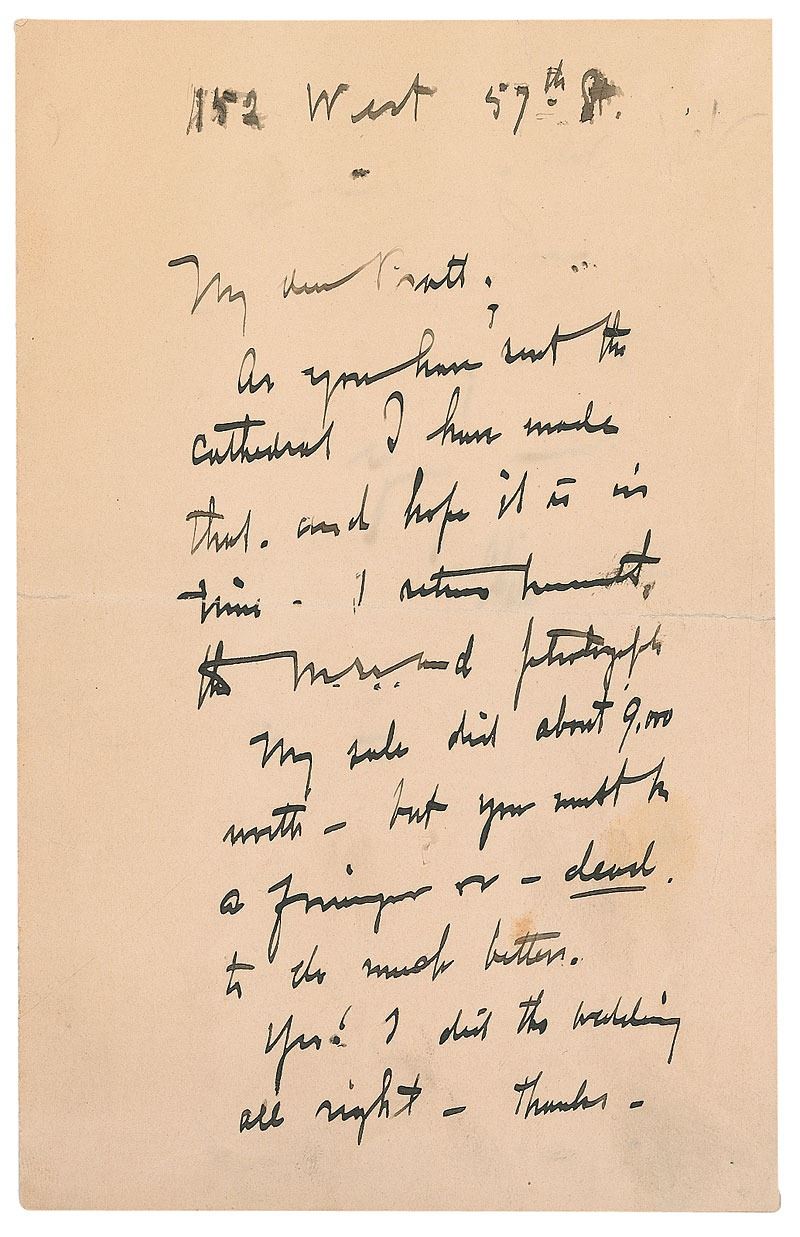 152 West 57th St.
My dear Pratt,
As you have sent the
cathedral I have made
that. and hope it is in
time - I return herewith,
the Mss. and photograph
My sale did about 9,000
worth - but you must be
a foreigner or - dead.
to do much better.
Yes! I did the wedding
all right - Thanks -